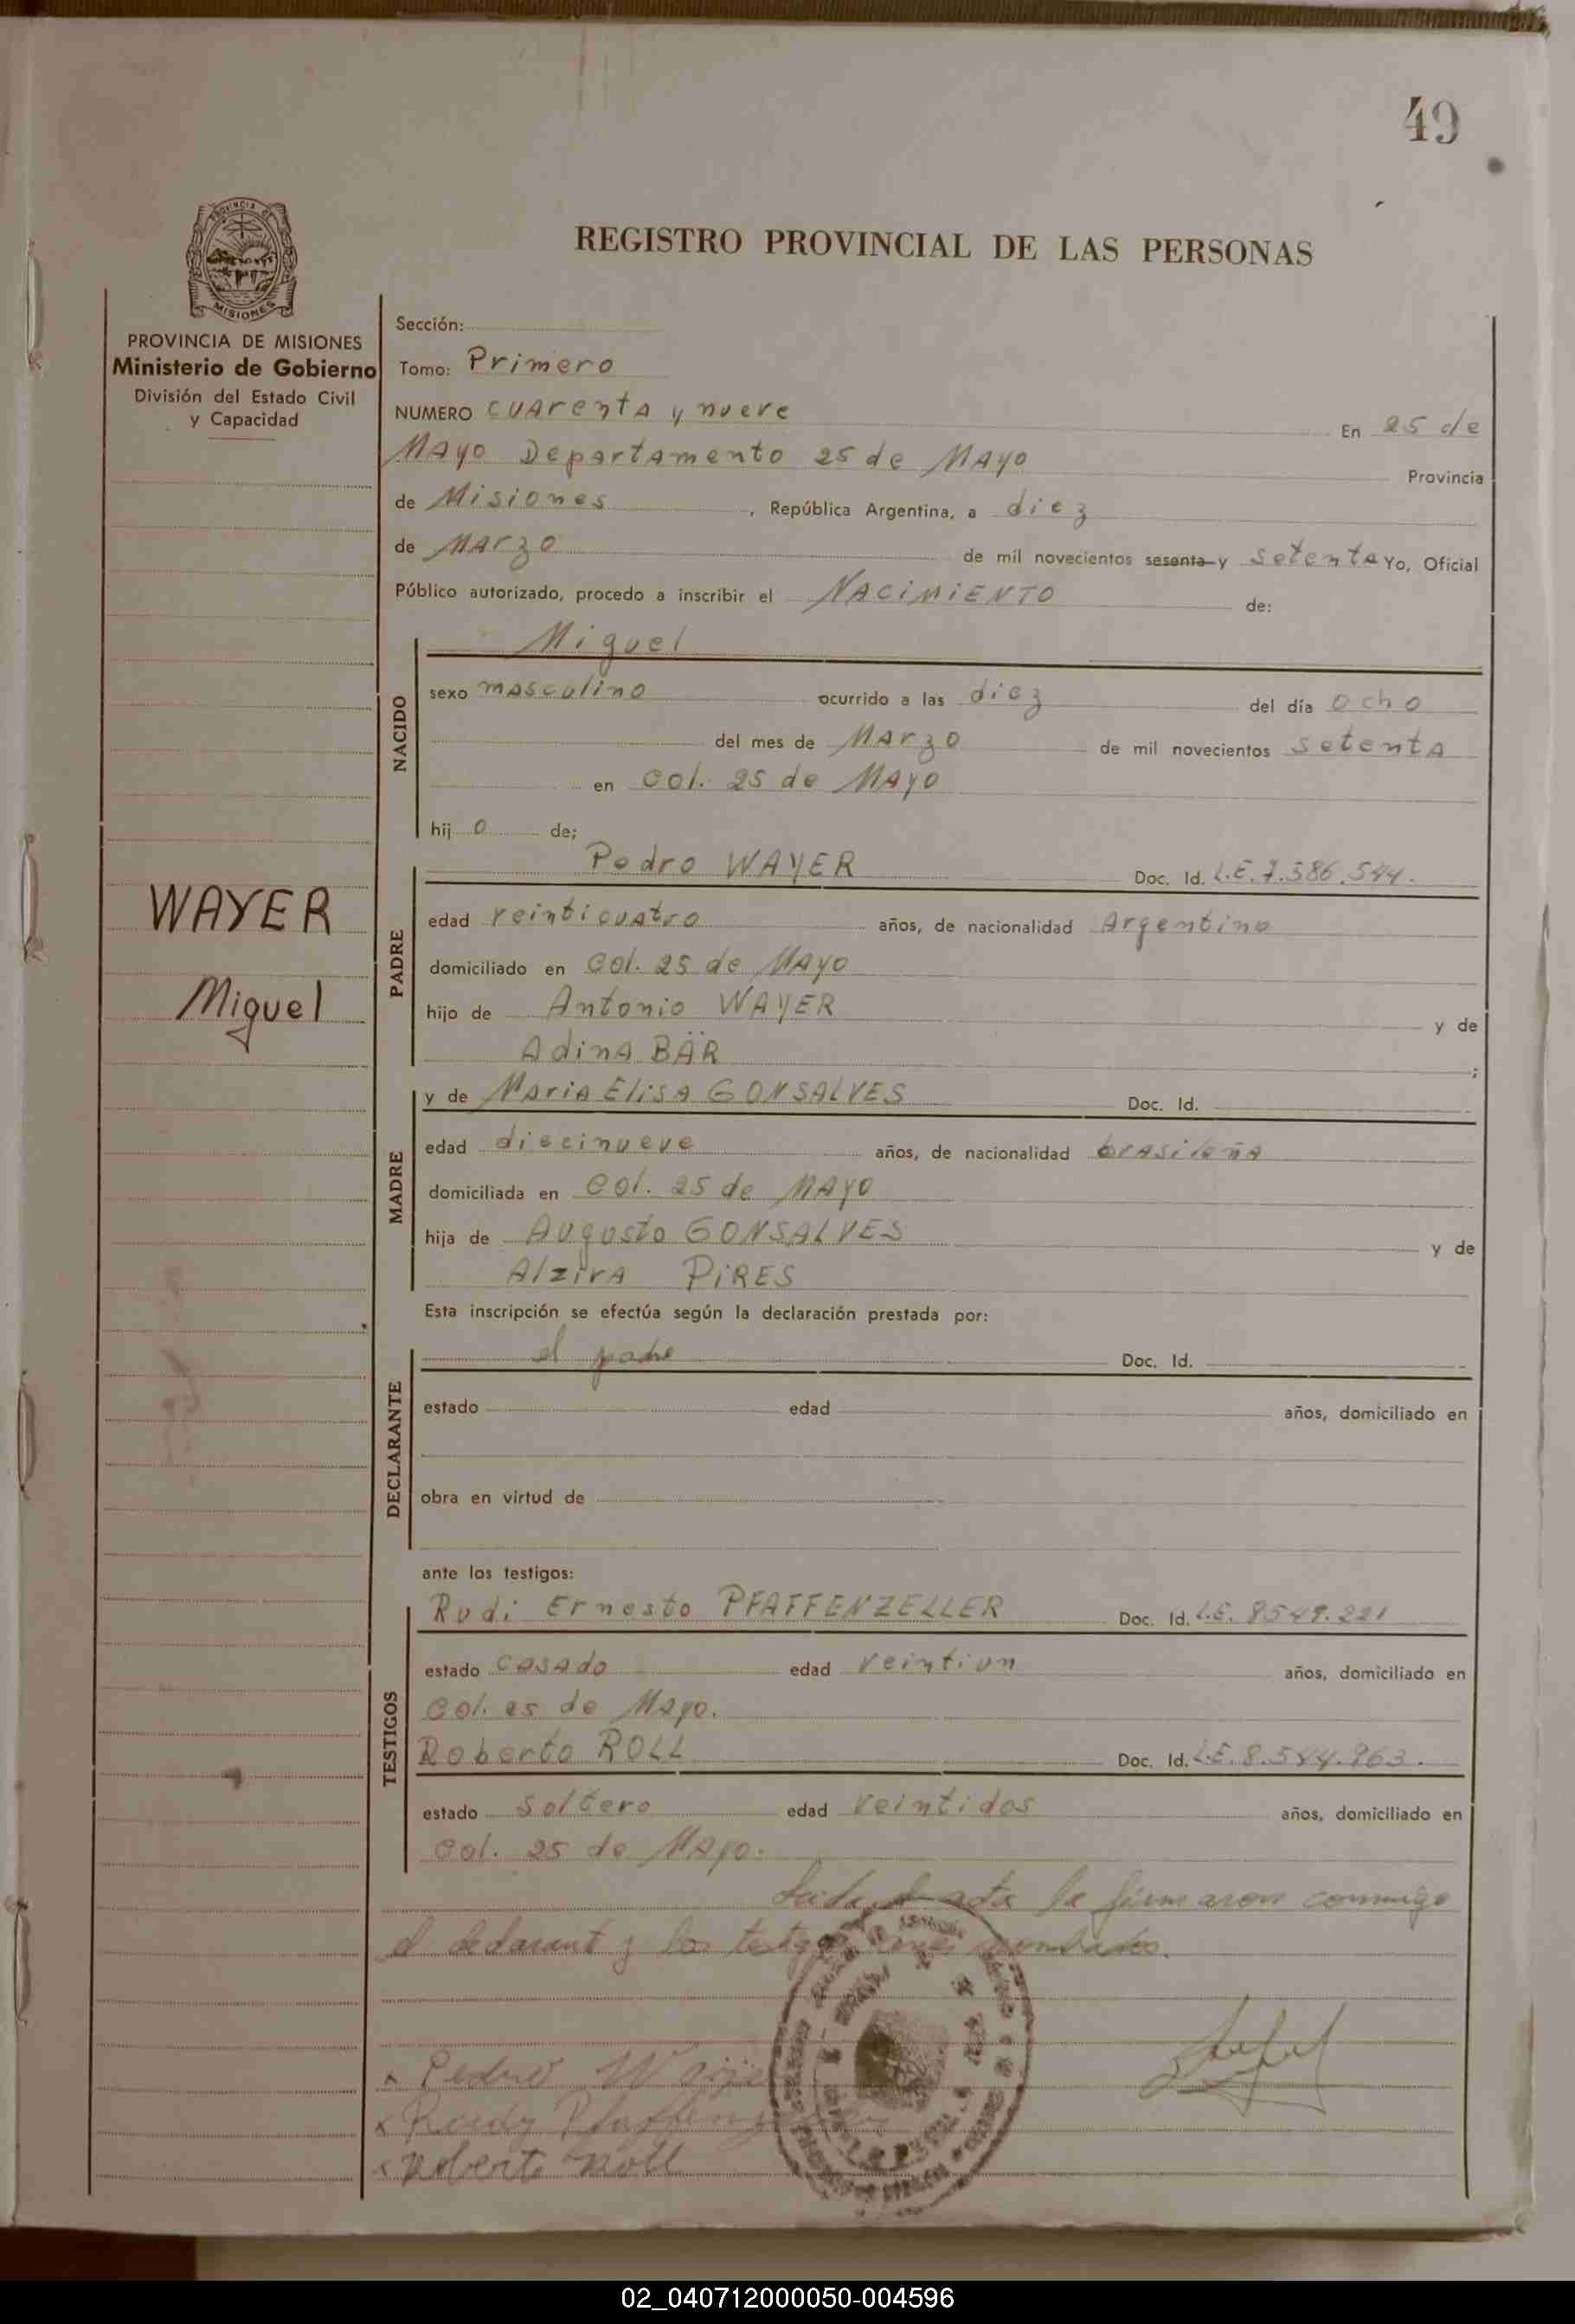 49
PROVINCIA DE
MISIONES
REGISTRO PROVINCIAL DE LAS PERSONAS
PROVINCIA DE MISIONES
Ministerio de Gobierno
División del Estado Civil
y Capacidad
WAYER
Miguel
Sección:
Tomo: Primero
NUMERO cuarenta y nueve En 25 de
Mayo Departamento 25 de Mayo Provincia
de Misiones, República Argentina, a diez
de Marzo de mil novecientos sesenta y setenta Yo, Oficial
Público autorizado, procedo a inscribir el NACIMIENTO de:
NACIDO
Miguel
sexo masculino ocurrido a las diez del día ocho
del mes de Marzo de mil novecientos setenta
en Col. 25 de Mayo
hij o de;
PADRE
Pedro WAYER Doc. Id. L.E. 7.586.544.
edad veinticuatro años, de nacionalidad Argentino
domiciliado en Col. 25 de Mayo
hijo de Antonio WAYER y de
Adina BÄR ;
MADRE
y de Maria Elisa GONSALVES Doc. Id.
edad diecinueve años, de nacionalidad brasileña
domiciliada en Col. 25 de Mayo
hija de Augusto GONSALVES y de
Alzira PIRES
Esta inscripción se efectúa según la declaración prestada por:
DECLARANTE
el padre Doc. Id.
estado edad años, domiciliado en
obra en virtud de
ante los testigos:
TESTIGOS
Rudi Ernesto PFAFFENZELLER Doc. Id. L.E. 8549.221
estado casado edad veintiun años, domiciliado en
Col. 25 de Mayo.
Roberto ROLL Doc. Id. L.E. 8.544.963.
estado Soltero edad veintidos años, domiciliado en
Col. 25 de Mayo.
acta la firmaron conmigo
el declarant y los testigos
Pedro
Roberto Roll
02_040712000050-004596